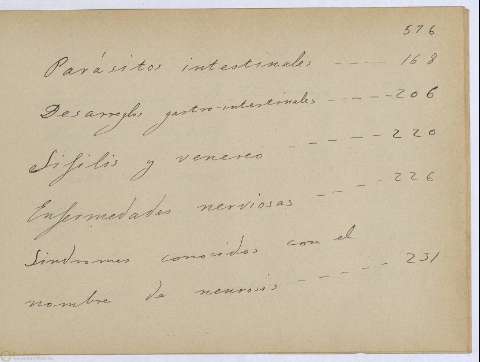 576
Parásitos intestinales ---- 168
Desarreglos gastro-intestinales ----- 206
Sifilis y venereo ------ 220
Enfermedades nerviosas ---- 226
Sindromes conocidos con el
nombre de neurosis ------ 231